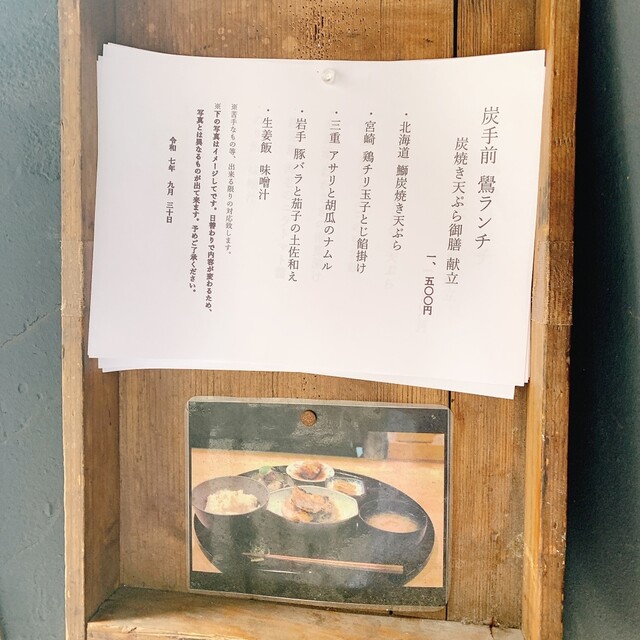 炭手前 鷽ランチ
炭焼き天ぷら御膳 献立
一、五〇〇円
・北海道 鰤炭焼き天ぷら
・宮崎 鶏チリ玉子とじ餡掛け
・三重 アサリと胡瓜のナムル
・岩手 豚バラと茄子の土佐和え
・生姜飯 味噌汁
※苦手なもの等、出来る限りの対応致します。
※下の写真はイメージしてです。日替わりで内容が変わるため、
写真とは異なるものが出て来ます。予めご了承ください。
令和 七年 九月 三十日